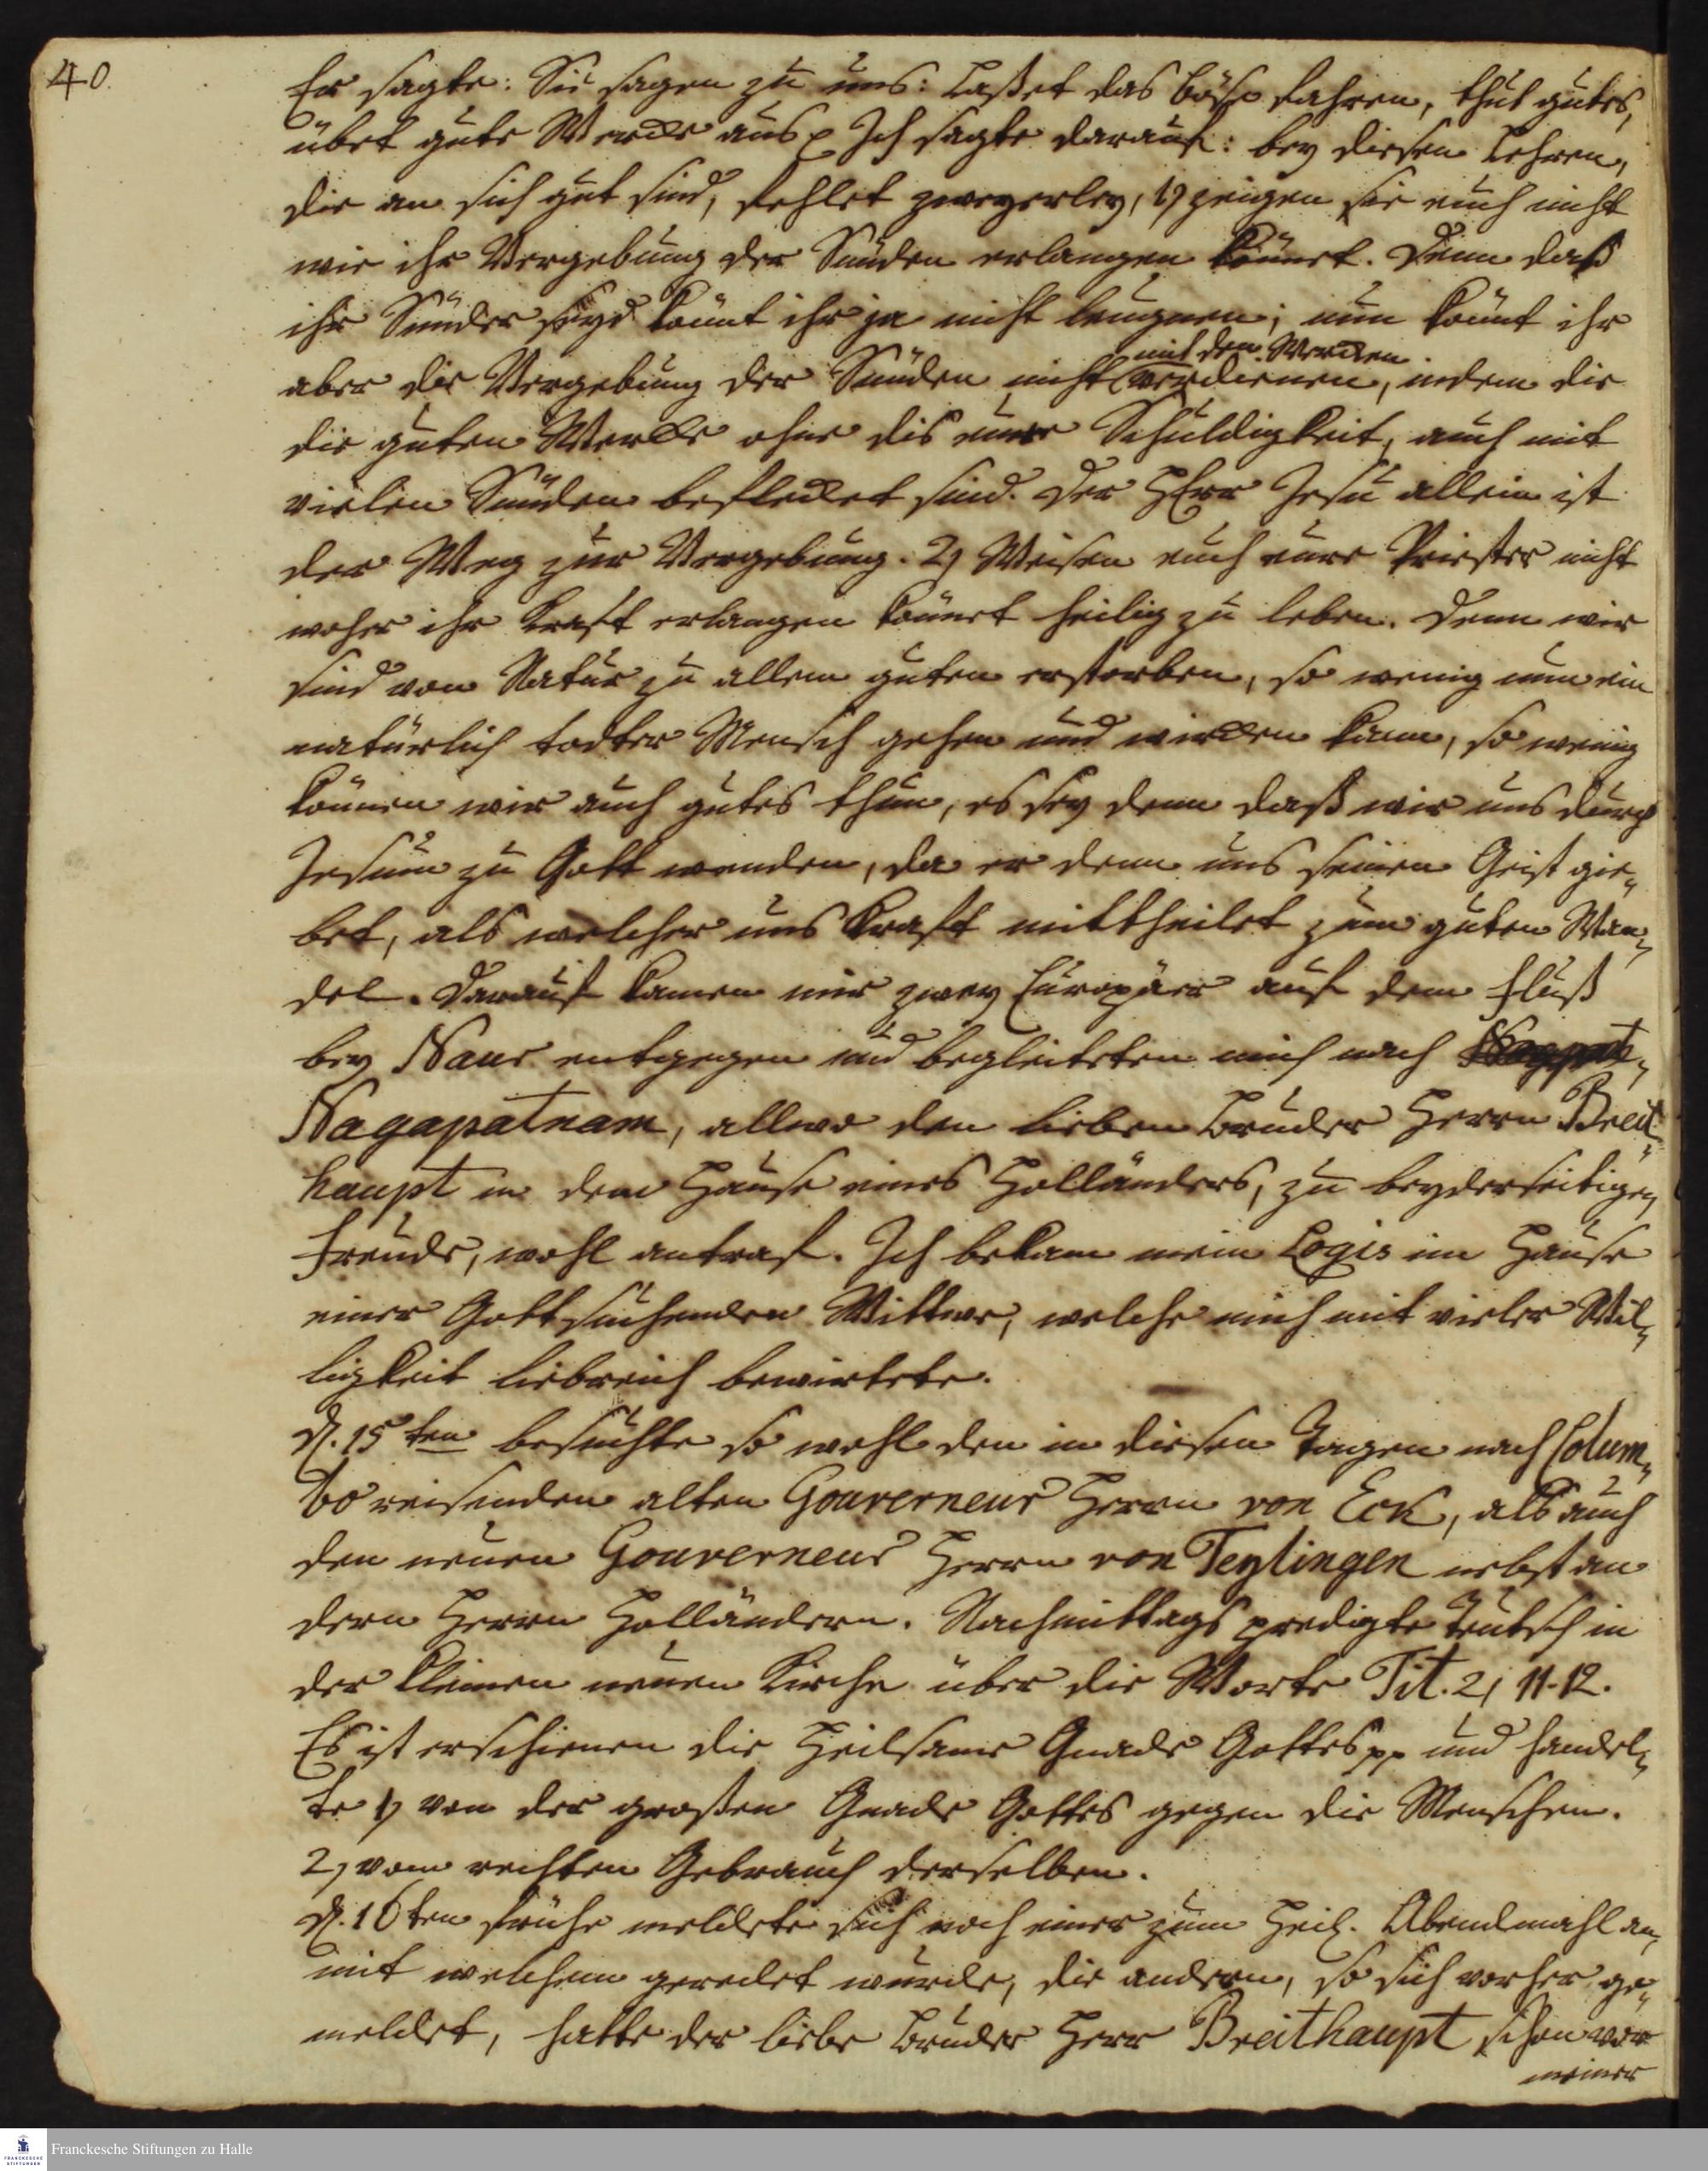 40.
Er sagte: Sie sagen zu uns: Laßet das böse fahren, thut gutes,
übet gute Wercke aus p Ich sagte darauf: bey diesen Lehren,
die an sich gut sind, fehlet zweyerley, 1) zeigen sie euch nicht
wie ihr Vergebung der Sünden erlangen könnet. Denn daß
ihr Sünder seyd könnt ihr ja nicht leugnen; nun könnt ihr
mit den Wercken
aber die Vergebung der Sünden nicht verdienen, indem die
die guten Wercke ohne dis eure Schuldigkeit, auch mit
vielen Sünden beflecket sind. Der HErr Jesu allein ist
der Weg zur Vergebung. 2) Weisen euch eure Priester nicht
woher ihr Kraft erlangen könnet heilig zu leben. Denn wir
sind von Natur zu allem guten erstorben, so wenig nun ein
natürlich todter Mensch gehen und wircken kann, so wenig
können wir auch gutes thun, es sey denn daß wir uns durch
Jesum zu Gott wenden, da er denn uns seinen Geist gie-
bet, als welcher uns Kraft mittheilet zum guten Wan-
del. Darauf kamen mir zwey Europäer auf dem Fluß
bey Naur entgegen und begleiteten mich nach
Nagapatnam, allwo den lieben Bruder Herrn Breit-
haupt in dem Hause eines Holländers, zu beyderseitigen
Freude, wohl antraf. Ich bekam mein Logis im Hause
einer Gott suchenden Wittwe, welche mich mit vieler Wil-
ligkeit liebreich bewirtete.
d. 15ten besuchte so wohl den in diesen Tagen nach Colum-
bo reisenden alten Gouverneur Herrn von Eck, als auch
den neuen Gouverneur Herrn von Teylingen nebst an
dern Herrn Holländern. Nachmittags predigte teutsch in
der kleinen neuen Kirche über die Worte Tit. 2, 11-12.
Es ist erschienen die Heilsame Gnade Gottes pp und handel-
te 1) von der großen Gnade Gottes gegen die Menschen.
2) vom rechten Gebrauch derselben.
d. 16ten frühe meldete sich noch einer zum Heil. Abendmahl an,
mit welchem geredet wurde, die andern, so sich vorher ge-
meldet, hatte der liebe Bruder Herr Breithaupt schon vor
meiner
Franckesche Stiftungen zu Halle
FRANCKESCHE STIFTUNGEN